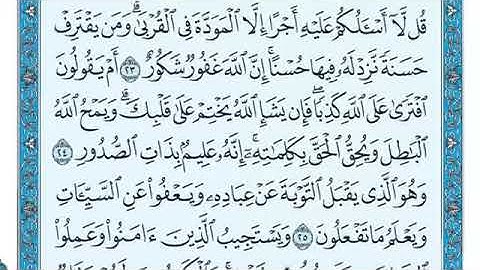 قُل لَّآ أَسْـَٔلُكُمْ عَلَيْهِ أَجْرًا إِلَّا ٱلْمَوَدَّةَ فِى ٱلْقُرْبَىٰ ۗ وَمَن يَقْتَرِفْ
حَسَنَةً نَّزِدْ لَهُۥ فِيهَا حُسْنًا ۚ إِنَّ ٱللَّهَ غَفُورٌ شَكُورٌ ٢٣ أَمْ يَقُولُونَ
ٱفْتَرَىٰ عَلَى ٱللَّهِ كَذِبًا ۖ فَإِن يَشَإِ ٱللَّهُ يَخْتِمْ عَلَىٰ قَلْبِكَ ۗ وَيَمْحُ ٱللَّهُ
ٱلْبَـٰطِلَ وَيُحِقُّ ٱلْحَقَّ بِكَلِمَـٰتِهِۦٓ ۚ إِنَّهُۥ عَلِيمٌۢ بِذَاتِ ٱلصُّدُورِ ٢٤
وَهُوَ ٱلَّذِى يَقْبَلُ ٱلتَّوْبَةَ عَنْ عِبَادِهِۦ وَيَعْفُوا۟ عَنِ ٱلسَّيِّـَٔاتِ
وَيَعْلَمُ مَا تَفْعَلُونَ ٢٥ وَيَسْتَجِيبُ ٱلَّذِينَ ءَامَنُوا۟ وَعَمِلُوا۟